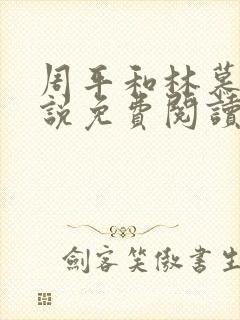 周平和林慕
說免費閱讀
劍客笑傲書生